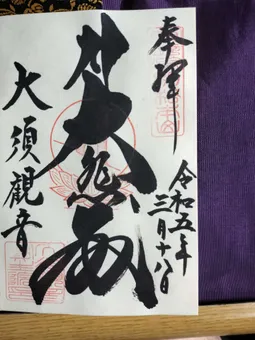 奉拝
令和五年
三月十八日
大悲殿
大須觀音